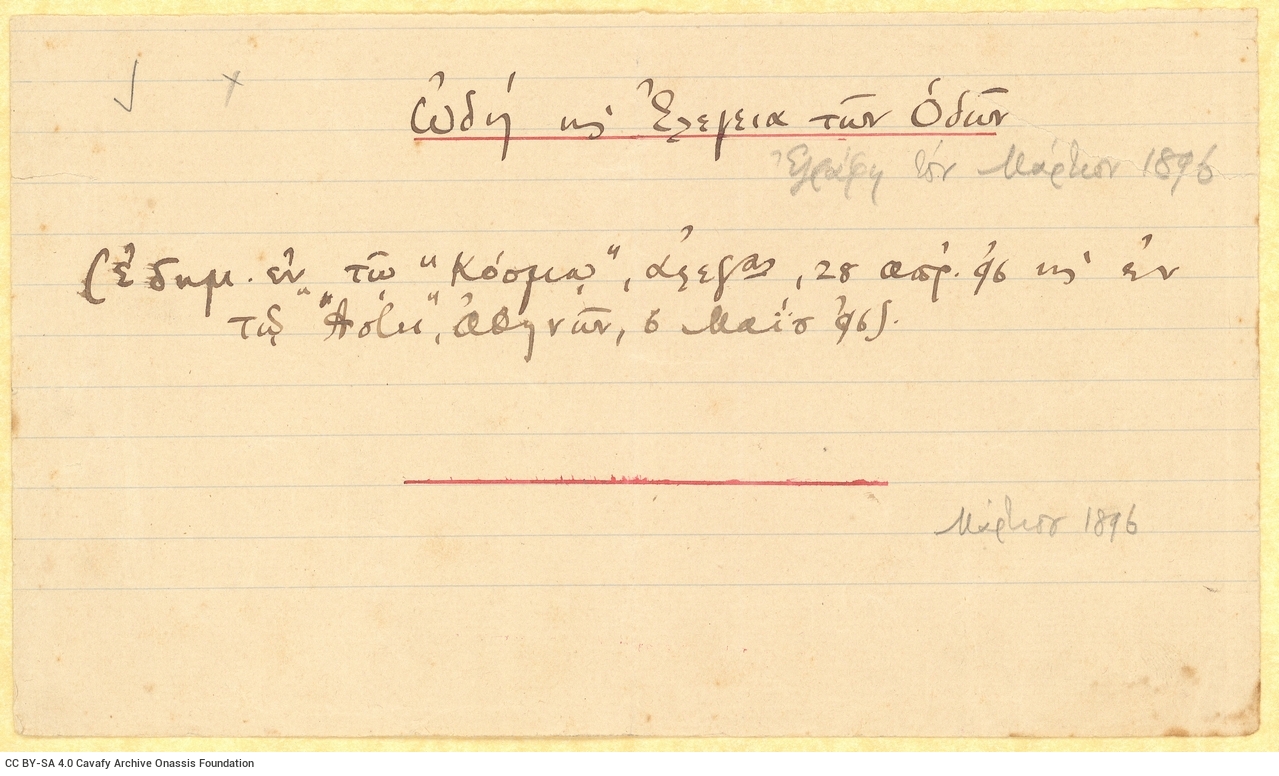 Ὠδή κ̀ Ἐλεγεία τῶν Ὁδῶν
Ἐγράφη τὸν Μάρτιον 1896
(ἐδημ. ἐν τῷ "Κόσμῳ", Ἀλεξ<sup>ας</sup>, 28 Ἀπρ. '96 κ̀ ἐν
τῷ "Ἄστει", Ἀθηνῶν, 6 Μαΐο '96).
Μάρτιον 1896
CC BY-SA 4.0 Cavafy Archive Onassis Foundation